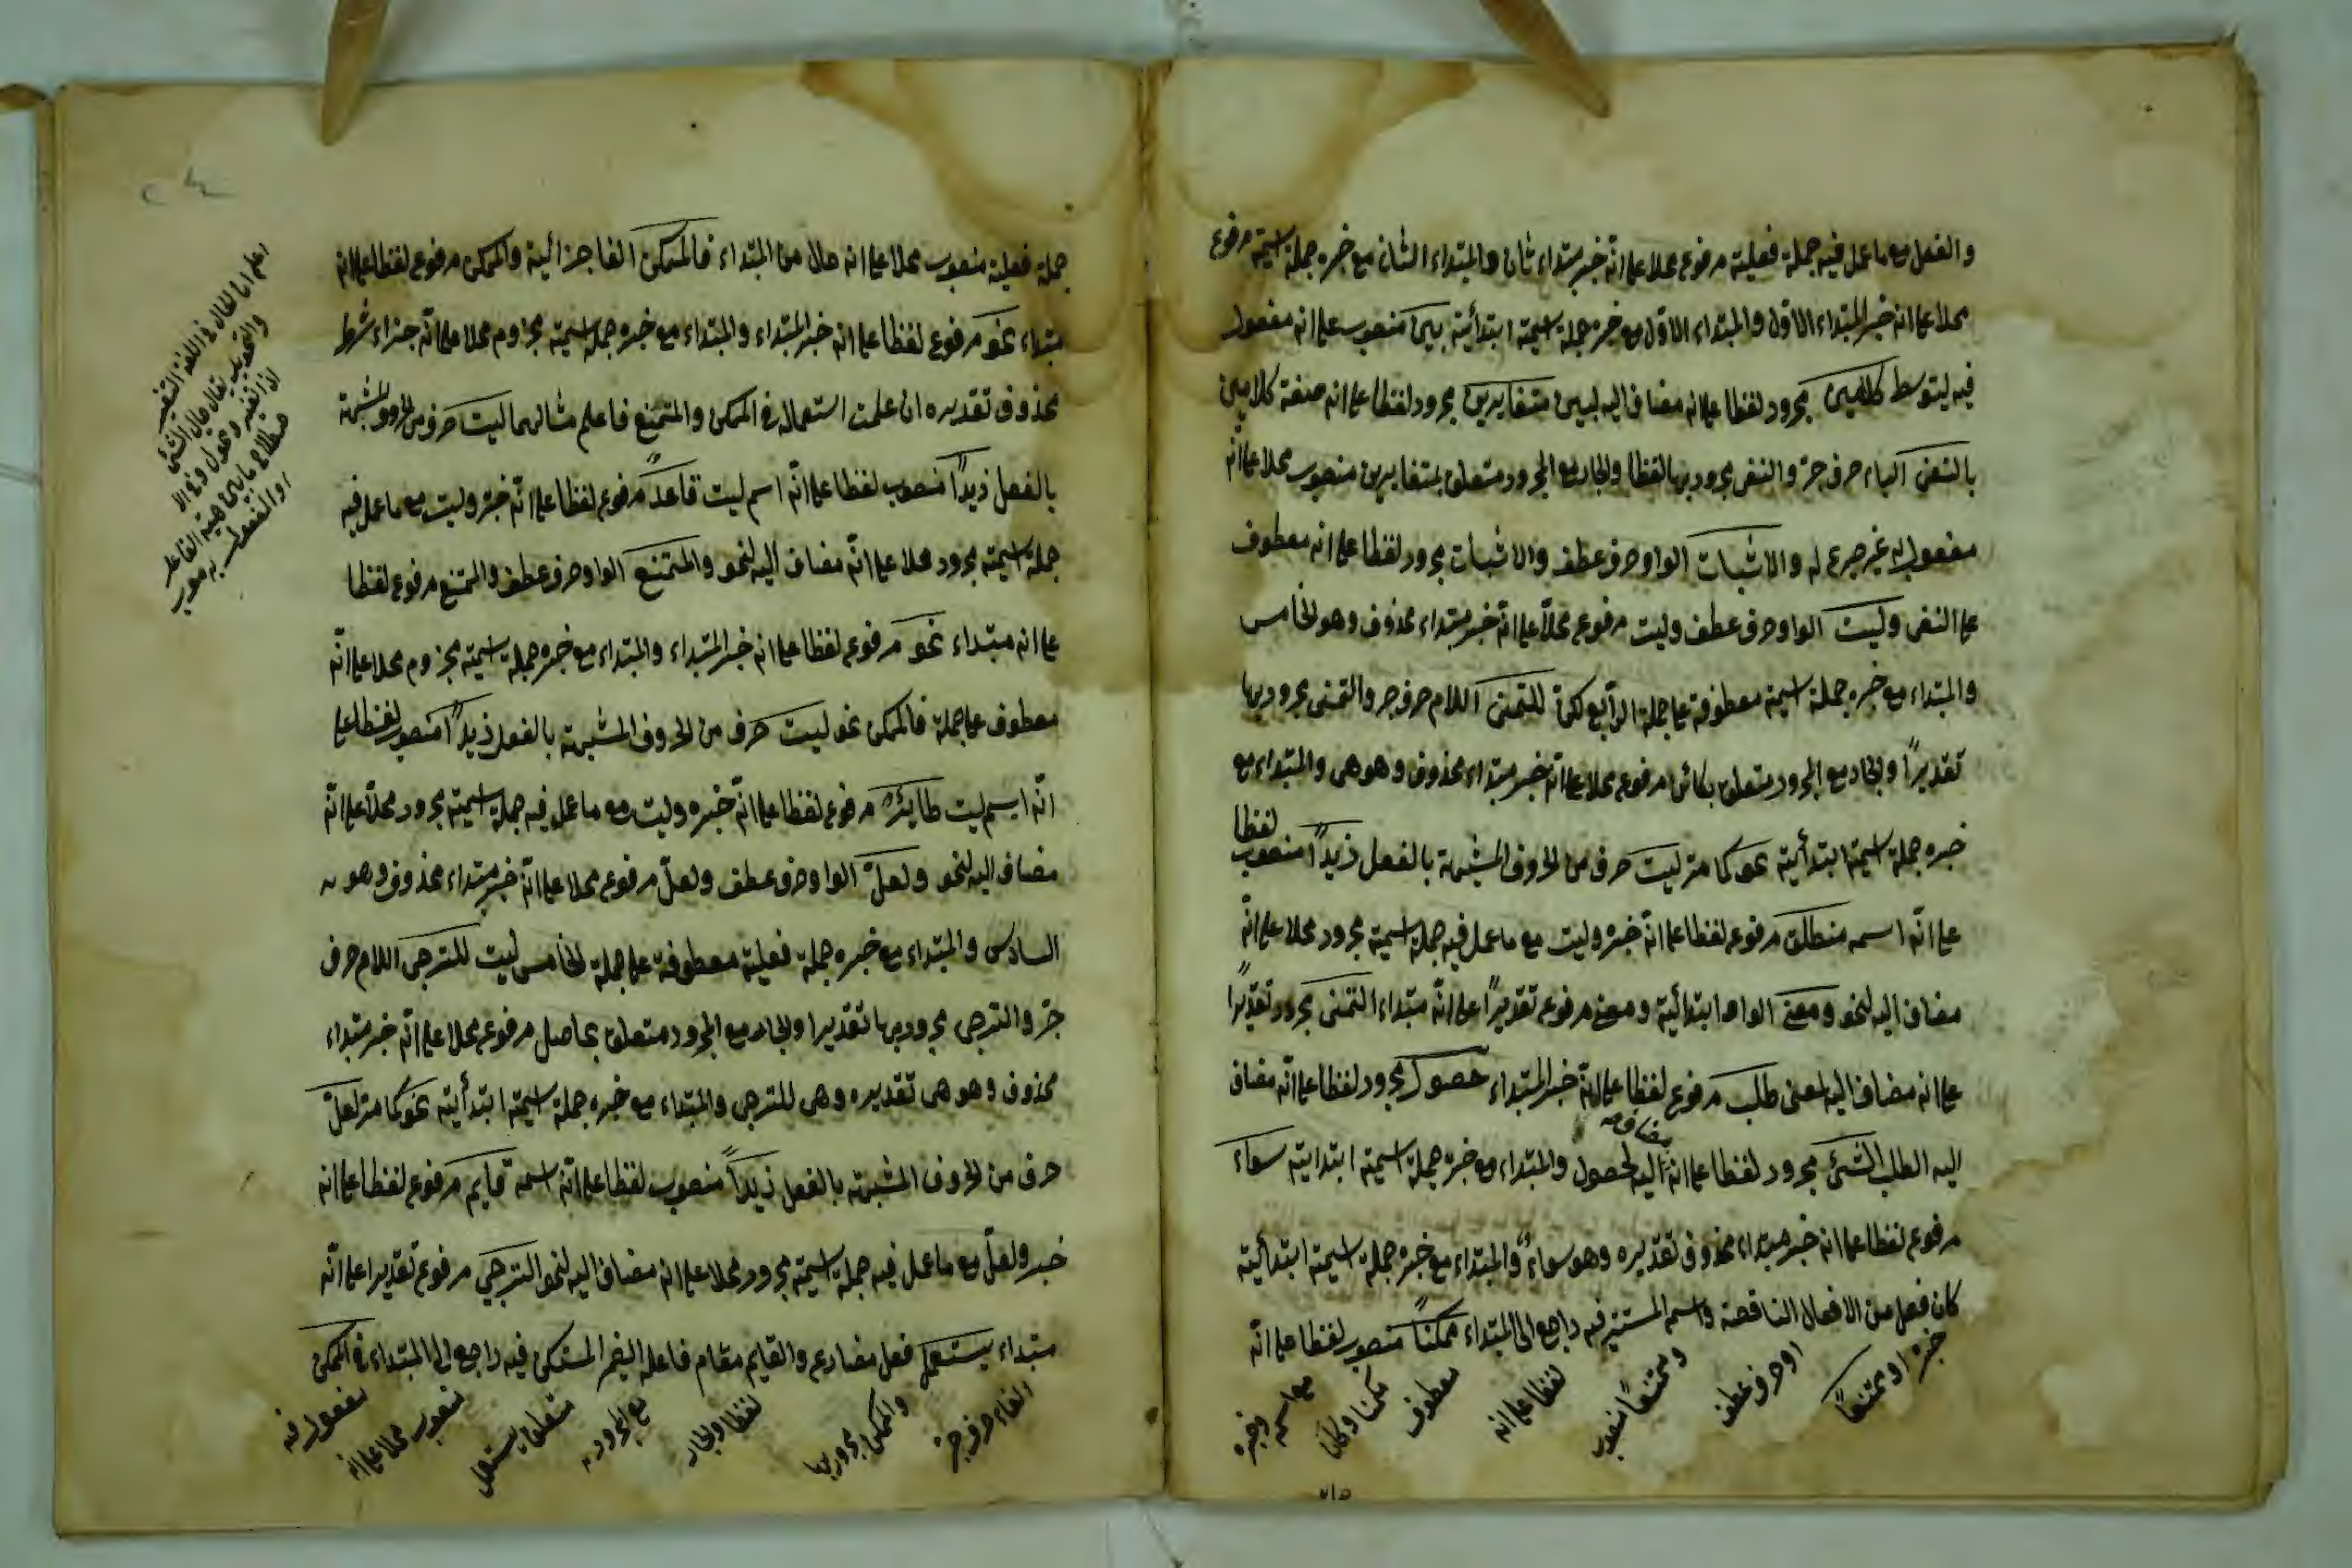 والفعل مع ما عمل فيه جملة فعلية مرفوع محلا على انّه خبر مبتداء ثان والمبتداء الثان مع خبره جملة اسمية مرفوع
محلا على انه خبر المبتداء الاوّل والمبتداء الاوّل مع خبره جملة اسمية ابتدأئية بين منصوب على انه مفعول
فيه ليتوسط كلامين مجرور لفظا على انه مضاف اليه لبين متغايرين مجرور لفظا على انه صفة كلامين
بالنفى الباء حرف جرّ والنفى مجرور بها لفظا والجار مع المجرور متعلق بمتغايرين منصوب محلا على انّه
مفعول به غير صريح له والاثبات الواو حرف عطف والاثبات مجرور لفظا على انه معطوف
على النفى وليت الواو حرف عطف وليت مرفوع محلّا على انّه خبر مبتداء محذوف وهو الخامس
والمبتداء مع خبره جملة اسمية معطوفة على جملة الرّابع لكنّ للتمنى اللام حرف جر والتمنى مجرور بها
تقديرًا والجار مع المجرور متعلق بكائن مرفوع محلا على انّه خبر مبتداء محذوف وهو هى والمبتداء مع
خبره جملة اسمية ابتدأئية نحو كما مرّ ليت حرف من الحروف المشبهة بالفعل زيدًا منصوب لفظا
على انّه اسمه منطلق مرفوع لفظا على انّه خبره وليت مع ما عمل فيه جملة اسمية مجرور محلا على انّه
مضاف اليه لنحو ومعنى الواو ابتدأئية ومعنى مرفوع تقديرًا على انّه مبتداء التمنى مجرور تقديرًا
على انه مضاف اليه لمعنى طلب مرفوع لفظا على انّه خبر المبتداء حصول مجرور لفظا على انّه مضاف
اليه الطلب الشئ مجرور لفظا على انه مضاف اليه لحصول والمبتداء مع خبره جملة اسمية ابتدايئة سواء
مرفوع لفظا على انه خبر مبتداء محذوف تقديره وهو سواء والمبتداء مع خبره جملة اسمية ابتدأئية
كان فعل من الافعال الناقصة واسمه المستتر فيه راجع الى المبتداء ممكنًا منصوب لفظا على انّه
خبره او ممتنعًا
او حرف عطف
وممتنعًا منصوب
لفظا على انه
معطوف
ممكنا وكان
مع اسمه وخبره
جملة فعلية منصوب محلا على انه حال من المبتداء فالممكن الفا جزائية والممكن مرفوع لفظا على انه
مبتداء نحو مرفوع لفظا على انه خبر المبتداء والمبتداء مع خبره جملة اسمية مجزوم محلا على انّه جزاء شرط
محذوف تقديره ان علمت استعماله فى الممكن والممتنع فاعلم مثالهما ليت حرف من الحروف المشبهة
بالفعل زيدًا منصوب لفظا على انّه اسم ليت قاعدٌ مرفوع لفظا على انّه خبره وليت مع ما عمل فيه
جملة اسمية مجرور محلا على انّه مضاف اليه لنحو والممتنع الواو حرف عطف والممتنع مرفوع لفظا
على انه مبتداء نحو مرفوع لفظا على انه خبر المبتداء والمبتداء مع خبره جملة اسمية مجزوم محلا على انّه
معطوف على جملة فالممكن نحو ليت حرف من الحروف المشبهة بالفعل زيدًا منصوب لفظا على
انّه اسم ليت طايرٌ مرفوع لفظا على انّه خبره وليت مع ما عمل فيه جملة اسمية مجرور محلّا على انّه
مضاف اليه لنحو ولعلّ الواو حرف عطف ولعلّ مرفوع محلا على انّه خبر مبتداء محذوف وهو
السادس والمبتداء مع خبره جملة فعلية معطوفة على جملة الخامس ليت للترجى اللام حرف
جرّ والترجى مجرور بها تقديرا والجار مع المجرور متعلق بحاصل مرفوع محلا على انّه خبر مبتداء
محذوف وهو هى تقديره وهى للترجى والمبتداء مع خبره جملة اسمية ابتدأئية نحو كما مرّ لعلّ
حرف من الحروف المشبهة بالفعل زيدًا منصوب لفظا على انّه اسمه قايم مرفوع لفظا على انه
خبر ولعلّ مع ما عمل فيه جملة اسمية مجرور محلا على انه مضاف اليه لنحو الترجي مرفوع تقديرا على انّه
مبتداء يستعمل فعل مضارع والقايم مقام فاعله الضمير المستكن فيه راجع الى المبتداء فى الممكن
الفاء حرف جرّ
والممكن مجرور بها
لفظا والجار
مع المجرور
متعلق بيستعمل
منصوب محلا على انه
مفعول فيه
اعلم ان الحال فى اللغة التغير
والتحويل يقال حال الشئ
اذا تغير وتحول وفى الا
صطلاح ما يبين هيئة الفاعل
او المفعول به